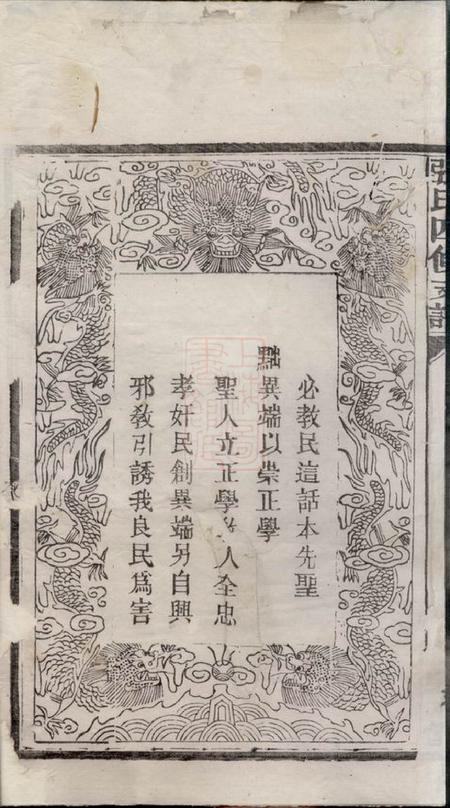 必教民這話本先聖
黜異端以崇正學
聖人立正學 人全忠
孝奸民創異端另自興
邪教引誘我良民為害
張氏四修支譜